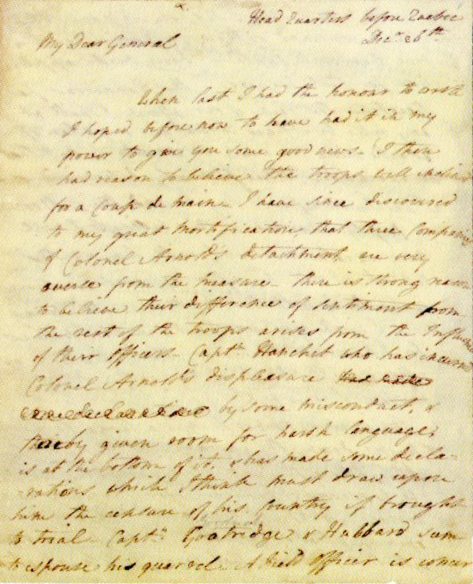 Head Quarters before Quebec
Decr. 26th
My Dear General
When last I had the honour to write
I hoped before now to have had it in my
power to give you some good news. I then
had reason to believe the troops well inclined
for a Coup de main. I have since discovered
to my great mortification, that three Companies
of Colonel Arnold's detachment are very
averse from the measure. there is strong reason
to believe their difference of sentiment from
the rest of the troops arises from the Influence
of their officers. Captn. Hanchet who has incurred
Colonel Arnold's displeasure
by some misconduct, &
thereby given room for harsh language,
is at the bottom of it, & has made some decla-
-rations which I think must draw upon
him the censure of his Country if brought
to trial. Captns. & Hubbard seem
to espouse his quarrel. A Field officer is